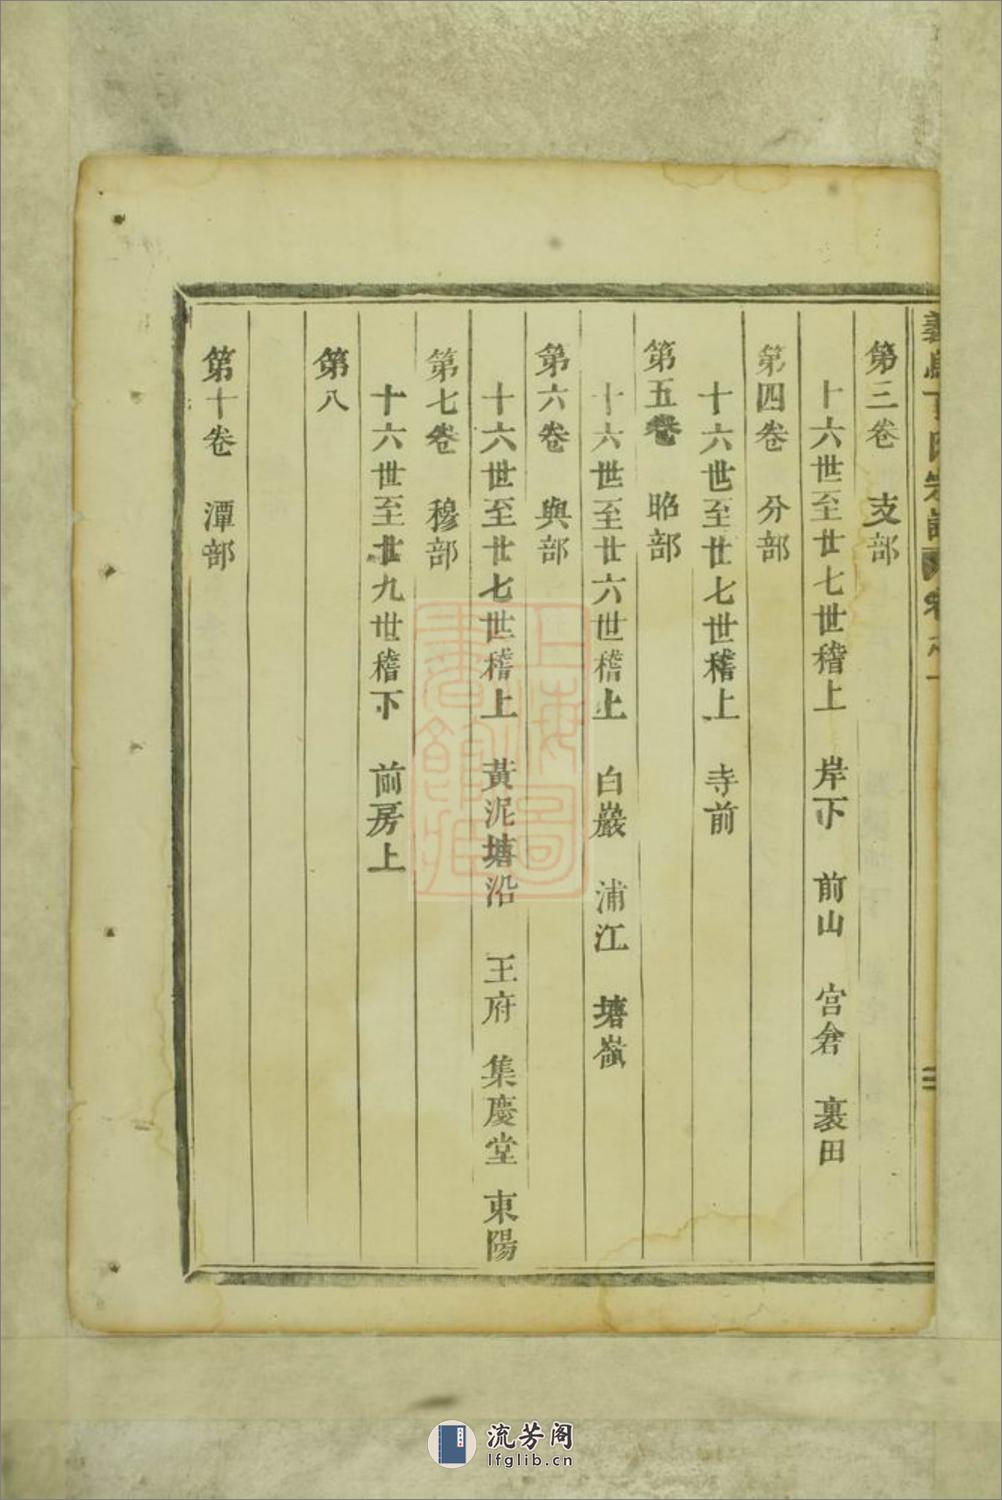 第三卷　支部
十六世至廿七世稽上　岸下　前山　宫倉　裏田
第四卷　分部
十六世至廿七世稽上　寺前
第五卷　昭部
十六世至廿六世稽上　白巖　浦江　塘嶺
第六卷　與部
十六世至廿七世稽上　黃泥塘沿　王府　集慶堂　東陽
第七卷　穆部
十六世至廿九世稽下　前房上
第八
第十卷　潭部
上海圖書館藏
流芳阁
lfglib.cn